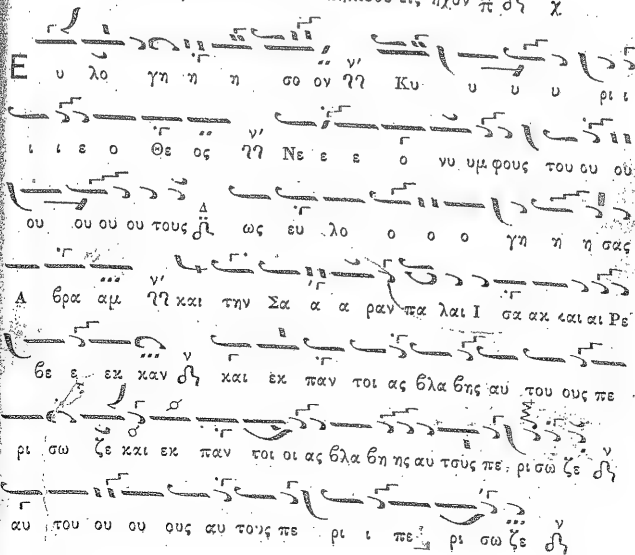 εις ηχον π χ
Ε υ λο γη η η σο ον Κυ υ υ υ ρι ι
ι ι ε ο Θε ος Νε ε ε ο νυ υμ φους του ου ου
ου ου ου ου τους ως ευ λο ο ο ο γη η η σας
Α βρα αμ και την Σα α α ραν πα λαι Ι σα ακ και αι Ρε
βε ε εκ καν και εκ παν τοι ας βλα βης αυ του ους πε
ρι σω ζε και εκ παν τοι οι ας βλα βη ης αυ τους πε ρι σω ζε
αυ του ου ου ους αυ τους πε ρι ι πε ρι σω ζε